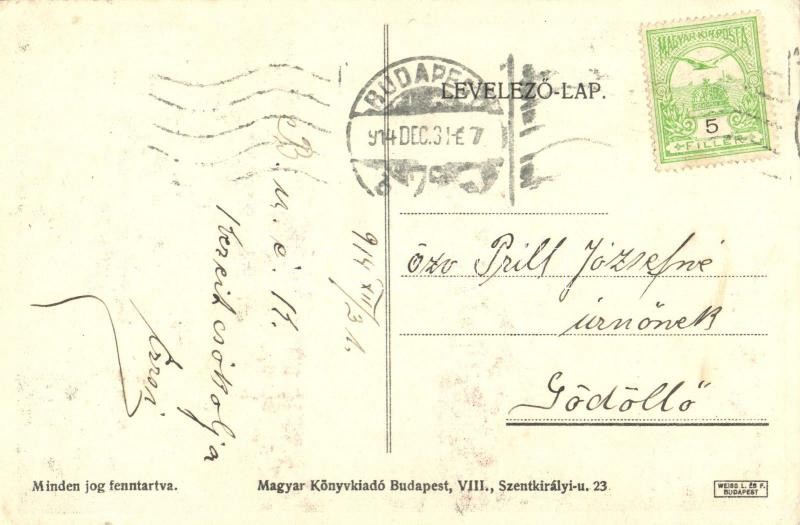 LEVELEZŐ-LAP.
MAGYAR KIR. POSTA
5
FILLÉR
BUDAPEST
914 DEC. 31 E 7
914 XII/31.
B. u. é. k.
Kezeit csókolja
özv Prill Józsefné
úrnőnek
Gödöllő
Minden jog fenntartva.
Magyar Könyvkiadó Budapest, VIII., Szentkirályi-u. 23
WEISS L. ÉS F.
BUDAPEST